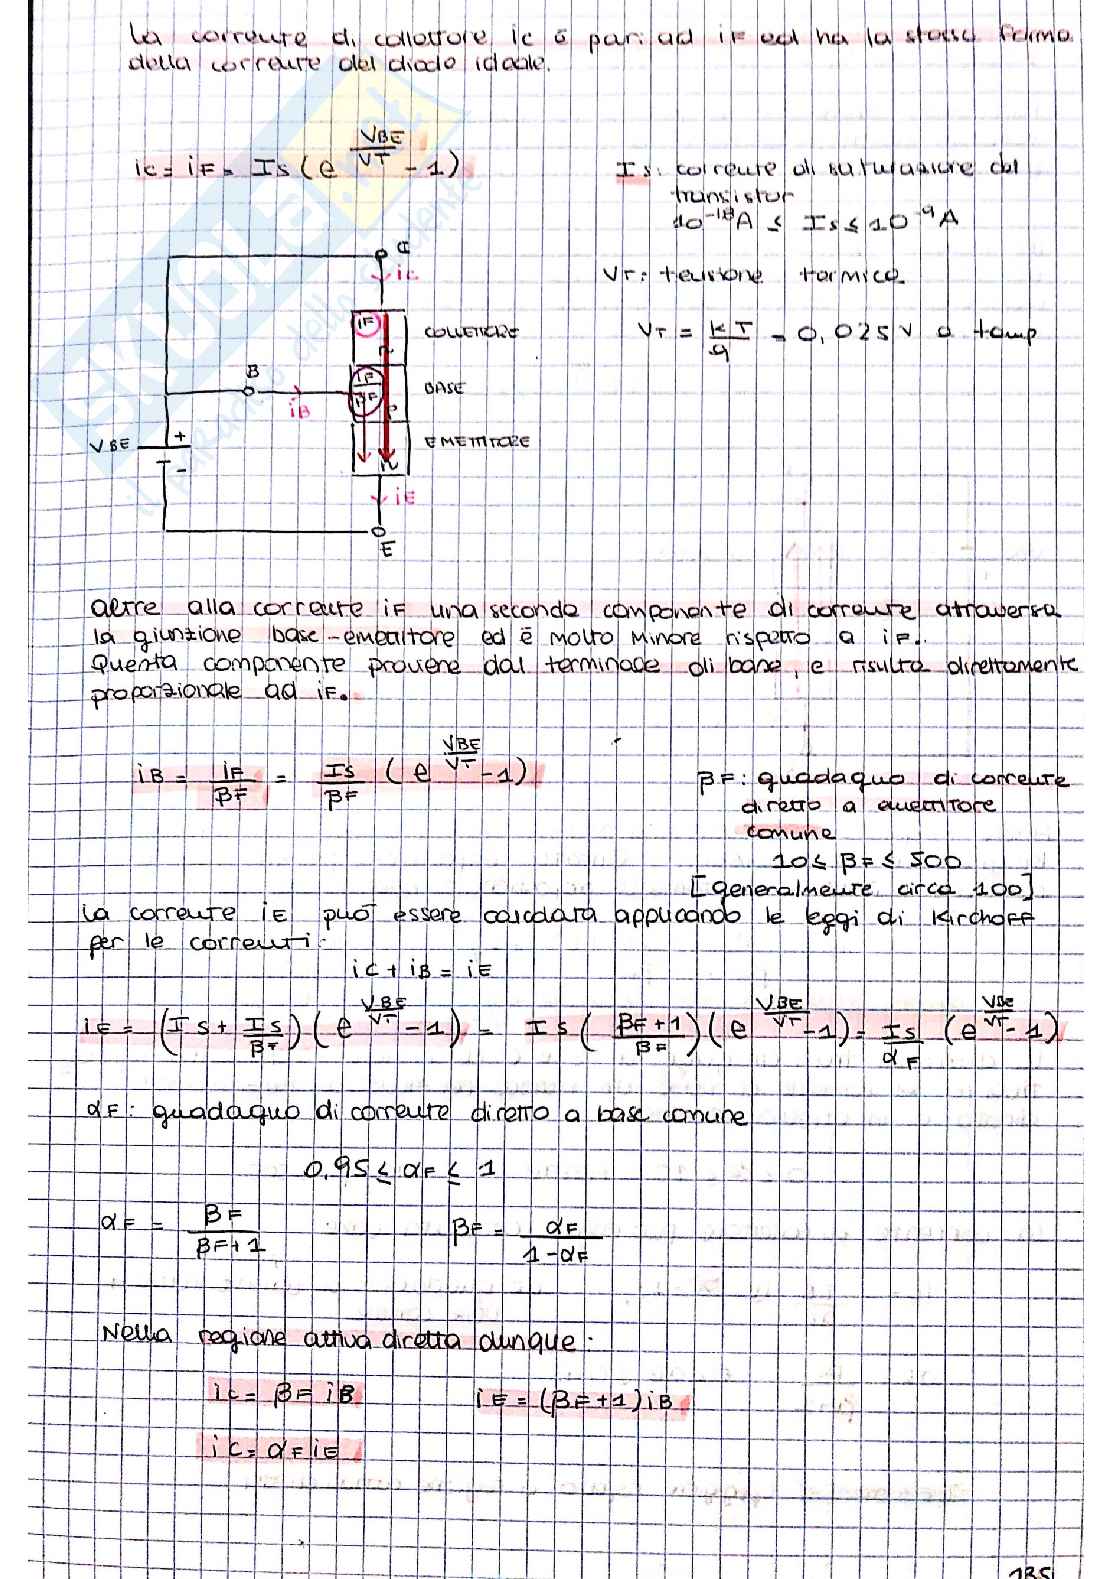 La corrente di collettore ic è pari ad iF ed ha la stessa forma
della corrente del diodo ideale.
ic = iF = Is (e^(VBE/VT) - 1)
Is: corrente di saturazione del
transistor
10^-18 A ≤ Is ≤ 10^-9 A
VT: tensione termica
VT = KT/q = 0,025V a temp
C
iC
iF
n
COLLETTORE
B
iB
iF/βF
P
BASE
VBE
+
-
n
EMETTITORE
iE
E
Oltre alla corrente iF una seconda componente di corrente attraversa
la giunzione base-emettitore ed è molto minore rispetto a iF.
Questa componente proviene dal terminale di base, e risulta direttamente
proporzionale ad iF.
iB = iF/βF = Is/βF (e^(VBE/VT) - 1)
βF: guadagno di corrente
diretto a emettitore
comune
10 ≤ βF ≤ 500
[generalmente circa 100]
La corrente iE può essere calcolata applicando le leggi di Kirchoff
per le correnti:
iC + iB = iE
iE = (Is + Is/βF) (e^(VBE/VT) - 1) = Is (βF+1/βF) (e^(VBE/VT) - 1) = Is/αF (e^(VBE/VT) - 1)
αF: guadagno di corrente diretto a base comune
0,95 ≤ αF ≤ 1
αF = βF/βF+1    βF = αF/1-αF
Nella regione attiva diretta dunque:
ic = βF iB    iE = (βF+1)iB
ic = αF iE
135